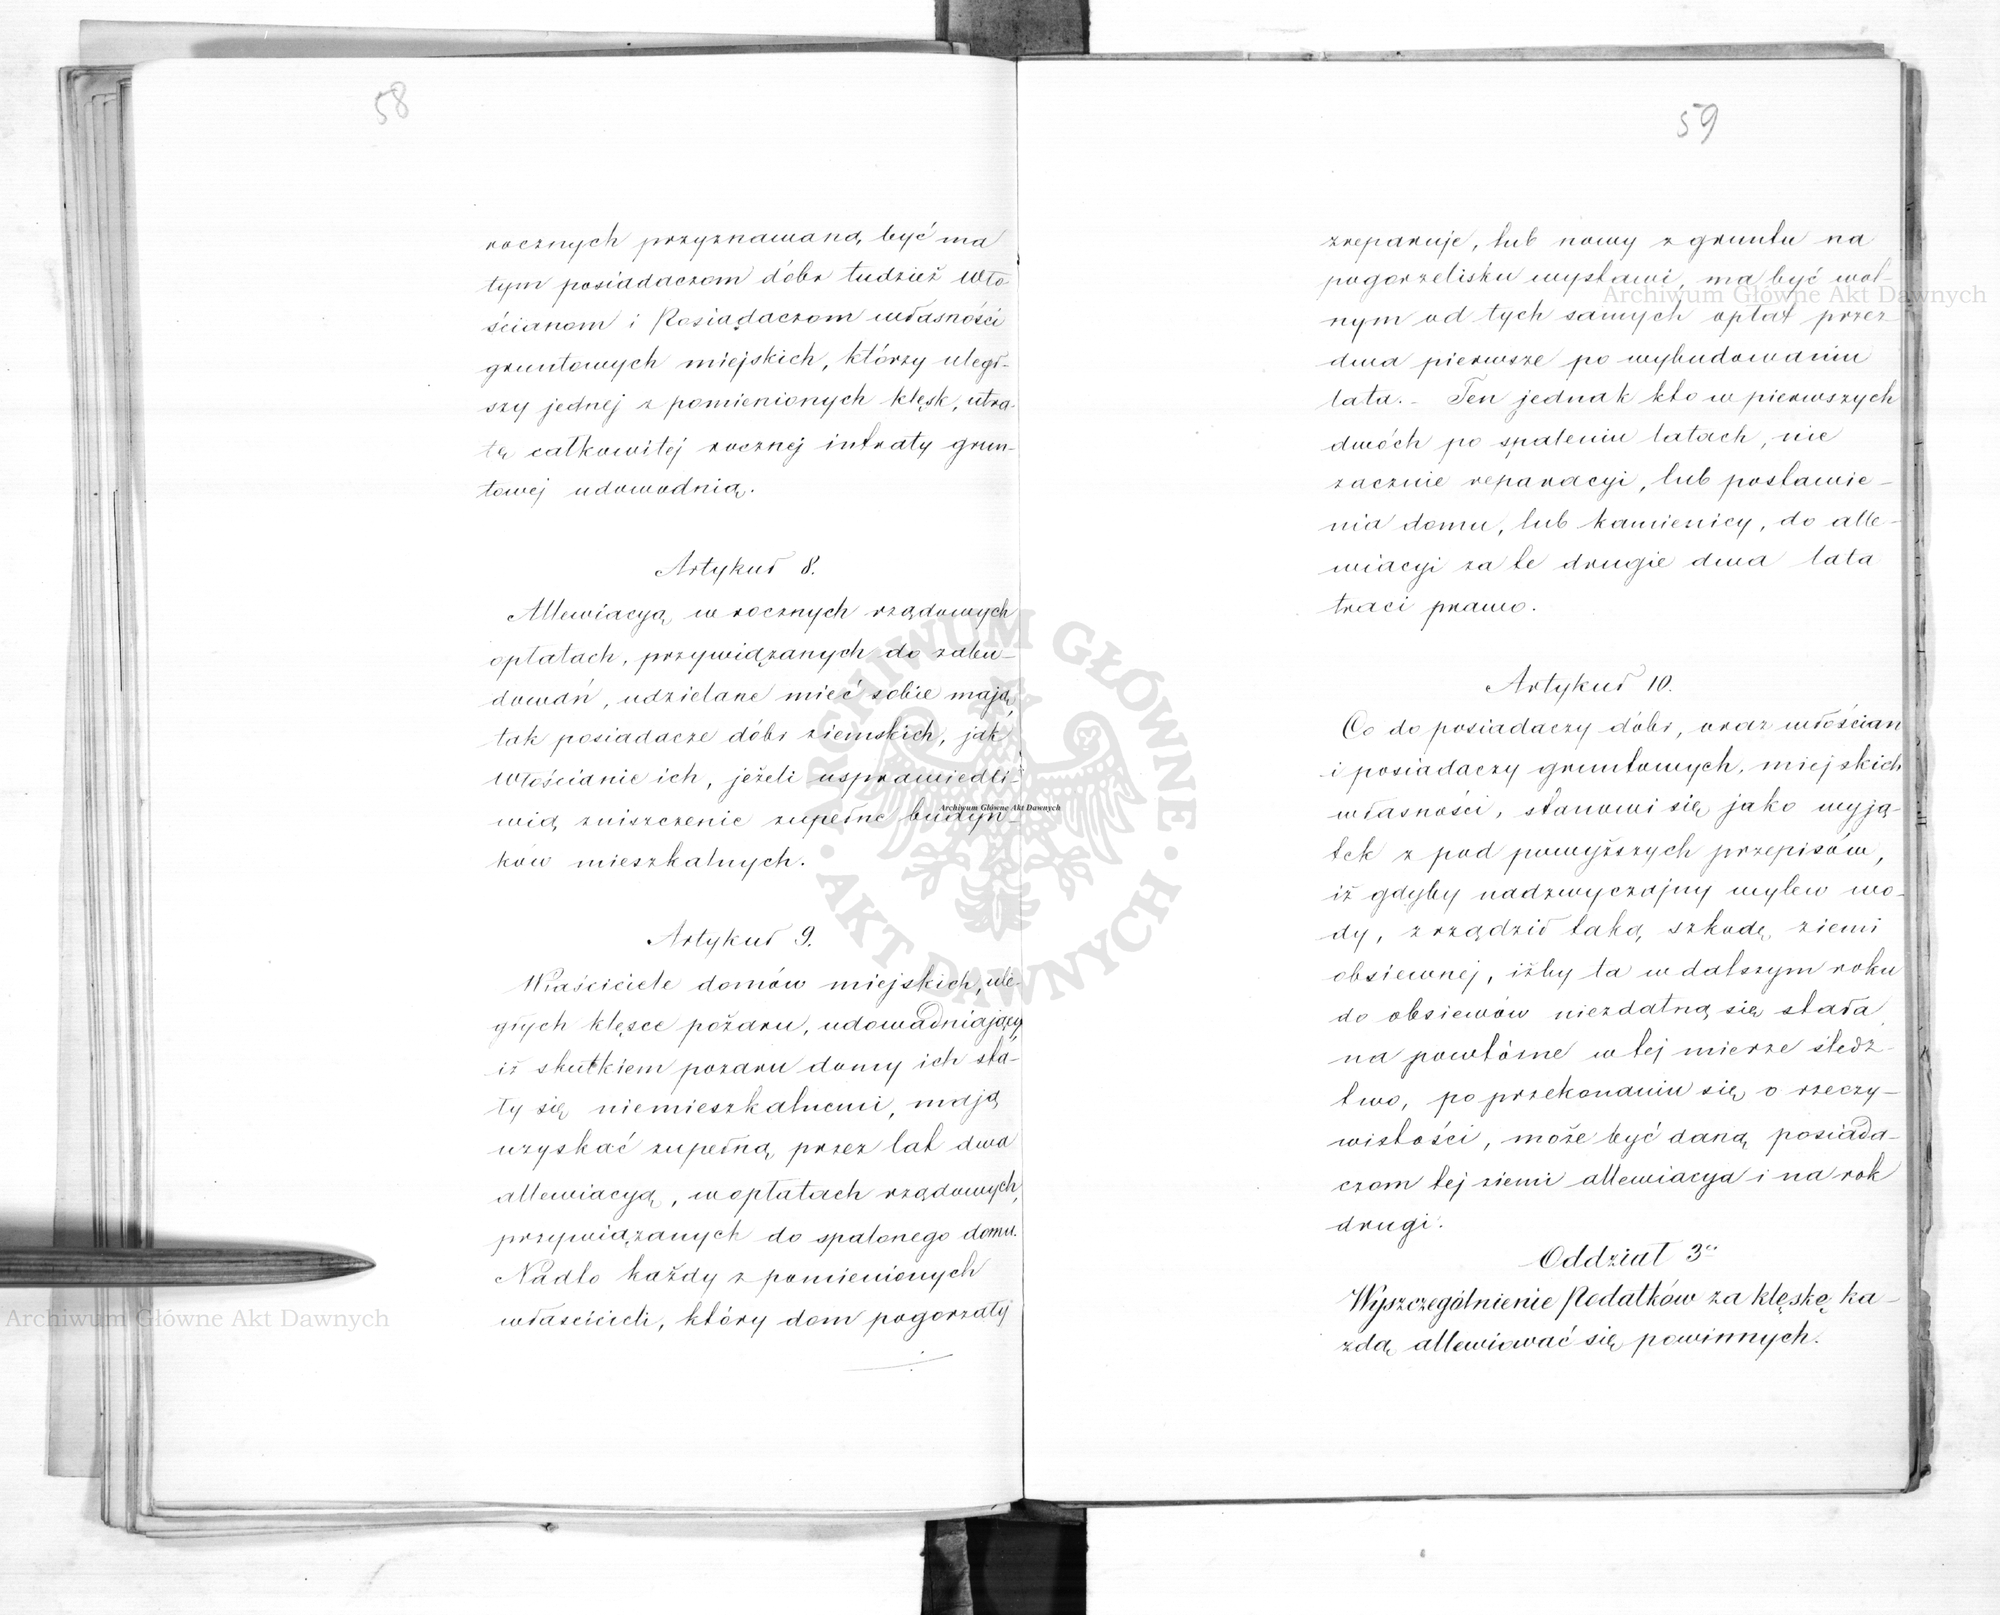 58
rocznych przyznawaną być ma
tym posiadaczom dóbr tudzież Wło-
ścianom i Posiadaczom własności
gruntowych miejskich, którzy uległ-
szy jednej z pomienionych klęsk, utra-
tę całkowitej rocznej intraty grun-
towej udowodnią.
Artykuł 8.
Allewiacyą w rocznych rządowych
opłatach, przywiązanych do zabu-
dowań, udzielane mieć sobie mają
tak posiadacze dóbr ziemskich, jak
Włościanie ich, jeżeli usprawiedli-
wią zniszczenie zupełne budyn-
ków mieszkalnych.
Artykuł 9.
Właściciele domów miejskich, ule-
głych klęsce pożaru, udowadniający,
iż skutkiem pożaru domy ich sta-
ły się niemieszkalnemi, mają
uzyskać zupełną przez lat dwa
allewiacyą, w opłatach rządowych,
przywiązanych do spalonego domu.
Nadto każdy z pomienionych
właścicieli, który dom pogorzały
59
zreparuje, lub nowy z gruntu na
pogorzelisku wystawi, ma być wol-
nym od tych samych opłat przez
dwa pierwsze po wybudowaniu
lata. - Ten jednak kto w pierwszych
dwóch po spaleniu latach, nie
zacznie reparacyi, lub postawie-
nia domu, lub kamienicy, do alle-
wiacyi za te drugie dwa lata
traci prawo.
Artykuł 10.
Co do posiadaczy dóbr, oraz włościan
i posiadaczy gruntowych, miejskich
własności, stanowi się jako wyją-
tek z pod powyższych przepisów,
iż gdyby nadzwyczajny wylew wo-
dy, zrządził taką szkodę ziemi
obsiewnej, iżby ta w dalszym roku
do obsiewów niezdatną się stała,
na powtórne w tej mierze śledz-
two, po przekonaniu się o rzeczy-
wistości, może być daną posiada-
czom tej ziemi allewiacya i na rok
drugi.
Oddział 3ci
Wyszczególnienie Podatków za klęskę ka-
żdą allewiować się powinnych.
Archiwum Główne Akt Dawnych
Archiwum Główne Akt Dawnych
Archiwum Główne Akt Dawnych
ARCHIWUM GŁÓWNE
AKT DAWNYCH